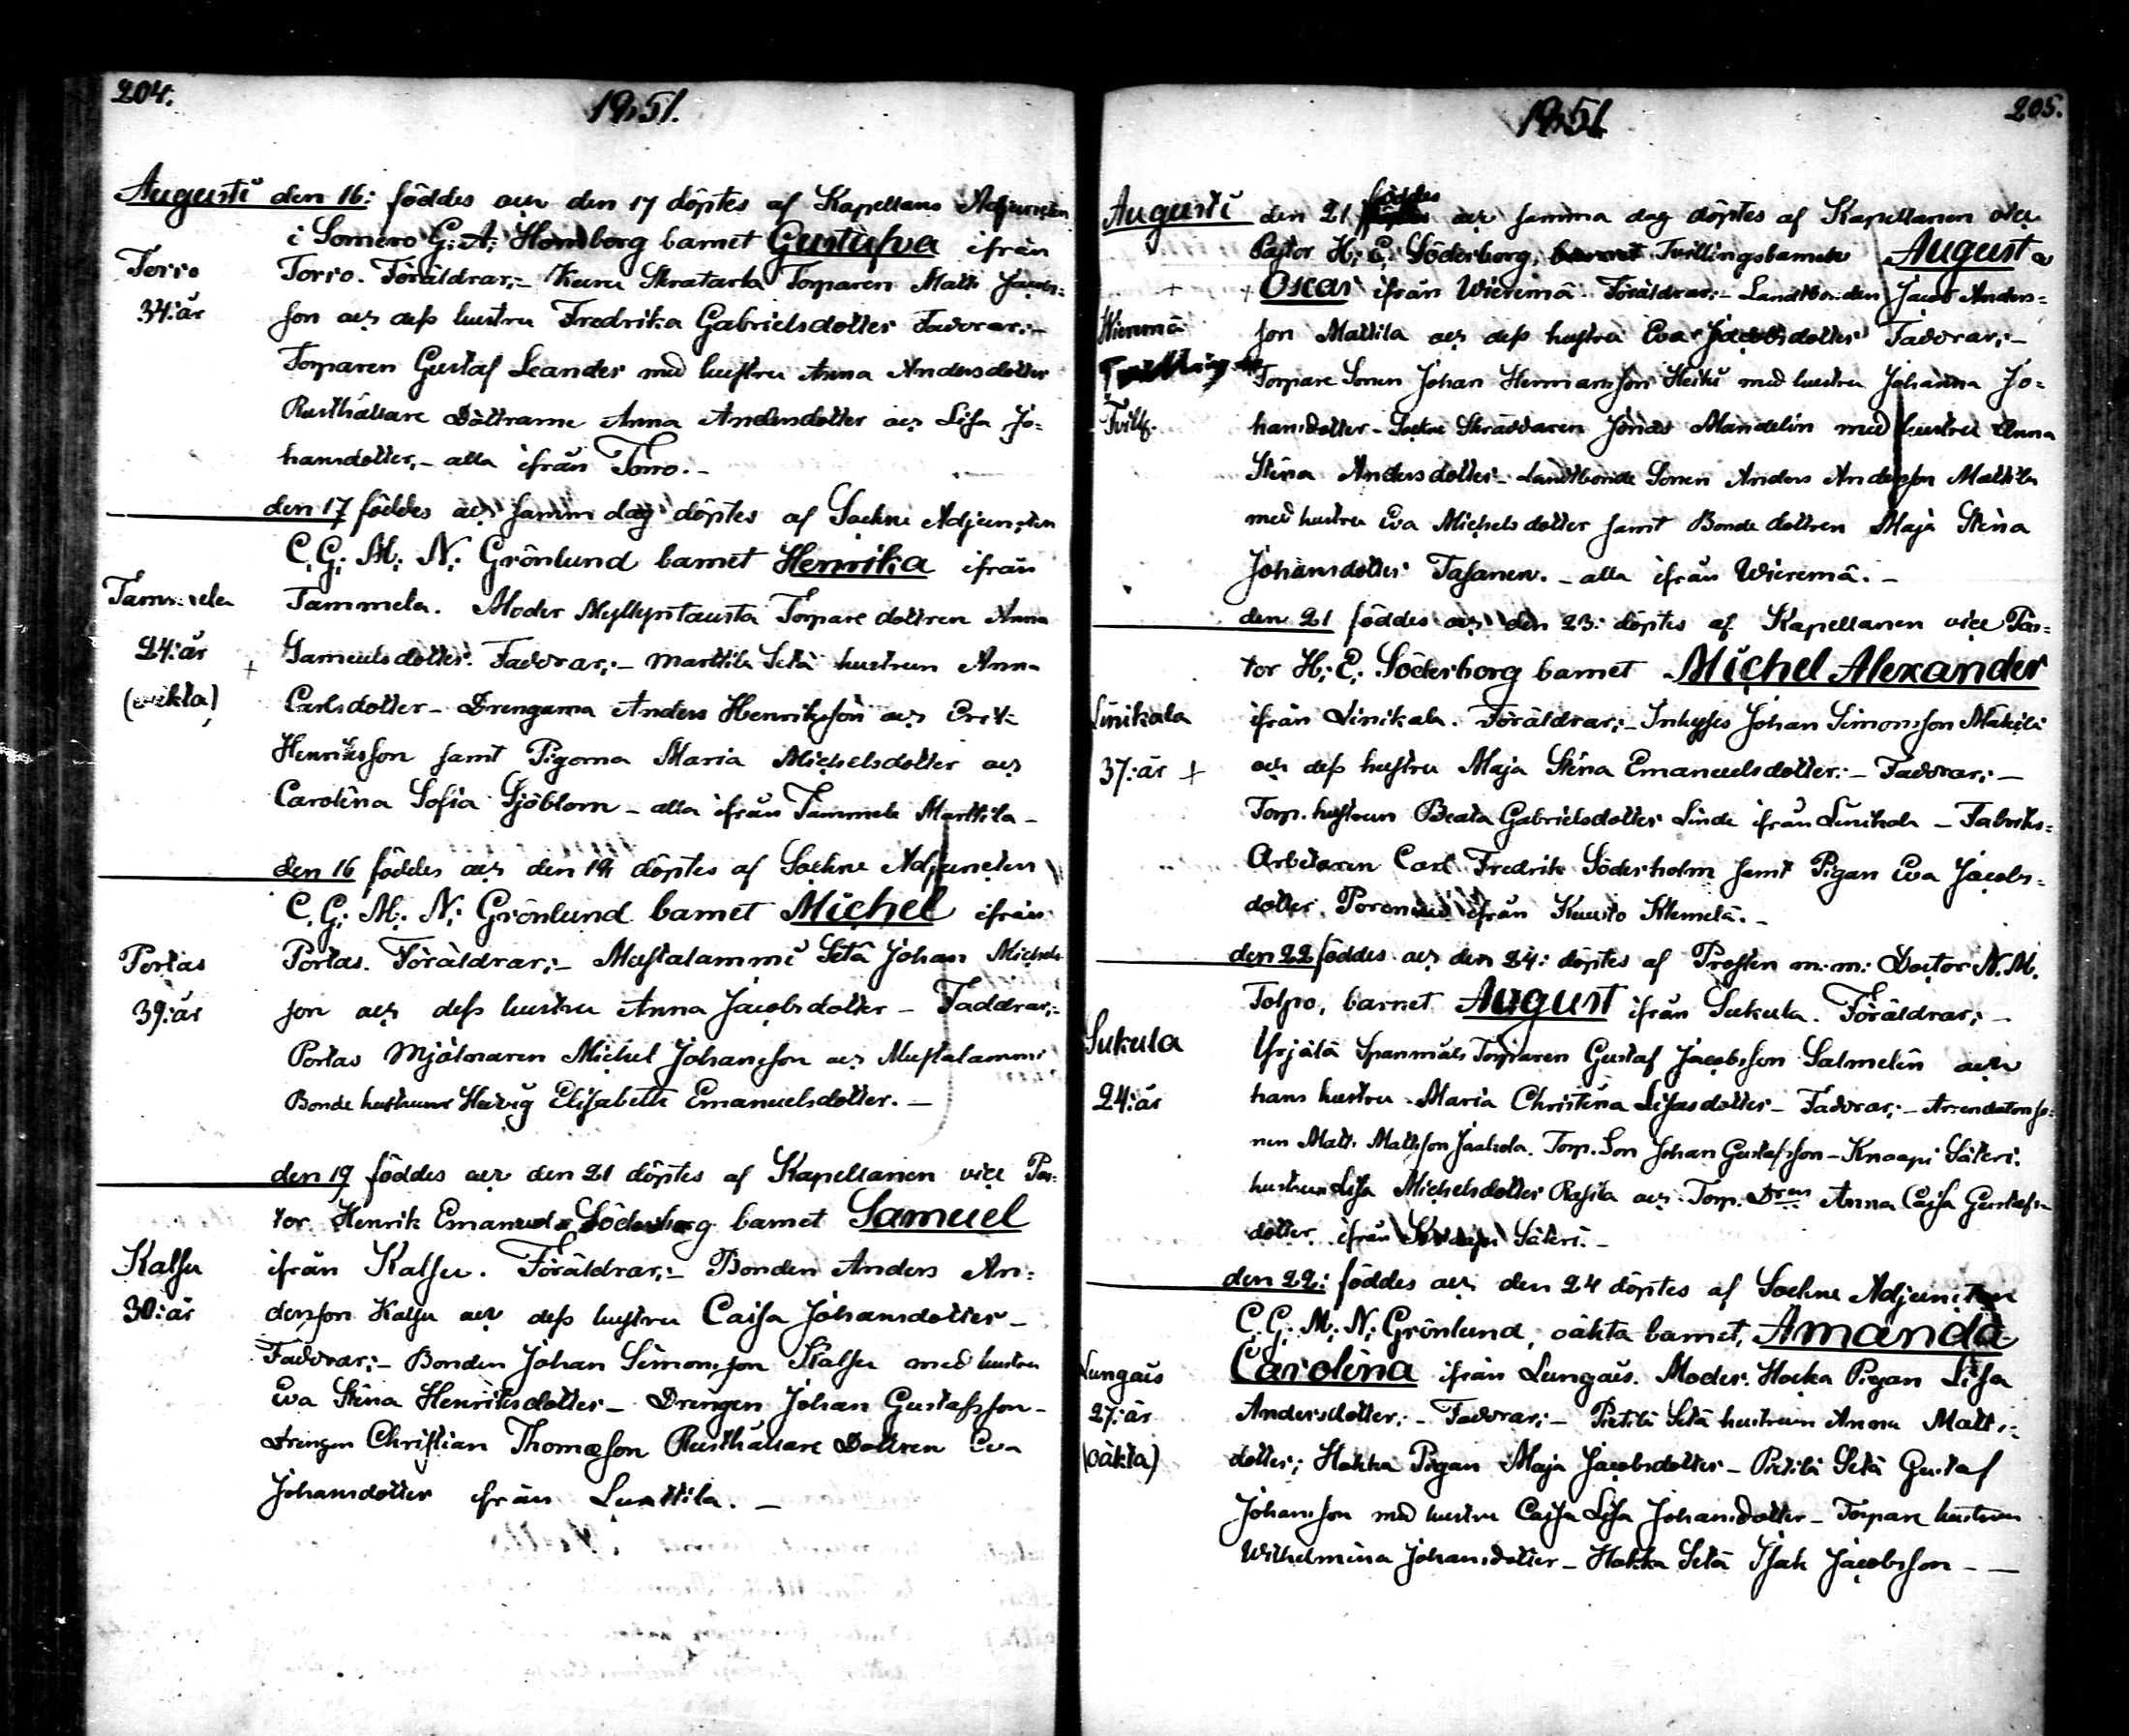 204.
1851.
Augusti den 16: föddes och den 17 döptes af Kapellans Adjuncten
i Somero G: A: Hornborg barnet Gustafva ifrån
Torro
Torro. Föräldrar;- Torparen Matts Jacobs=
34: år
son och dess hustru Fredrika Gabrielsdotter Faddrar;-
Torparen Gustaf Leander med hustru Anna Andersdotter
Rusthållare Döttrarne Anna Andersdotter och Lisa Jo=
hansdotter,- alla ifrån Torro.-
den 17 föddes och samm dag döptes af Sockne Adjuncten
C. G: M: N: Grönlund barnet Henrika ifrån
Tammela
Tammela. Moder Myllynstausta Torpare dottren Anna
24: år
Samuelsdotter. Faddrar;- Marttila Setä hustrun Anna
(oäkta)
Carlsdotter- Drengarna Anders Henriksson och Erik
Henriksson samt Pigorna Maria Michelsdotter och
Carolina Sofia Sjöblom - alla ifrån Tammela Marttila -
den 16 föddes och den 19 döptes af Sockne Adjuncten
C. G: M: N: Grönlund barnet Michel ifrån
Portas
Portas. Föräldrar;- Mustalammi Setä Johan Michels
39: år
son och dess hustru Anna Jacobsdotter - Faddrar;-
Portas Mjölnaren Michel Johansson och Mustalammi
Bonde hustrun Hedvig Elisabeth Emanuelsdotter. -
den 19 föddes och den 21 döptes af Kapellanen vice Pas-
tor Henrik Emanuel Söderborg barnet Samuel
Kalsu
ifrån Kalsu. Föräldrar;- Bonden Anders An:
30: år
dersson Kalsu och dess hustru Caisa Johansdotter -
Faddrar;- Bonden Johan Simonsson Kalsu med hustru
Eva Stina Henriksdotter - Drengen Johan Gustafsson -
Drengen Christian Thomasson Rusthållare Dottren Eva
Johansdotter ifrån Lunttila. -
205.
1851
Augusti den 21 föddes och samma dag döptes af Kapellanen vice
Pastor H: E: Söderborg, Tvillingsbarnet August o
Oscar ifrån Wieremä. Föräldrar;- Landtbonden Jacob Anders=
Wieremä
son Mattila och dess hustru Eva Jacobsdotter Faddrar;-
Torpare Sonen Johan Hermansson Heiku med hustru Johanna Jo=
Tvill.
hansdotter - Sockne Skräddaren Jonas Mandelin med hustru Anna
Stina Andersdotter - Landtbonde Sonen Anders Andersson Mattila
med hustru Eva Michelsdotter samt Bonde dottren Maja Stina
Johansdotter Tasanen. - alla ifrån Wieremä. -
den 21 föddes och den 23: döptes af Kapellanen vice Pas=
tor H: E: Söderborg barnet Michel Alexander
Linikala
ifrån Linikala. Föräldrar;- Inhyses Johan Simonsson Mäkilä
37: år +
och dess hustru Maja Stina Emanuelsdotter:- Faddrar;-
Torp. hustrun Beata Gabrielsdotter Linde ifrån Linikala - Fabriks=
Arbetaren Carl Fredrik Söderholm samt Pigan Eva Jacobs=
dotter ifrån Kuusto Klemelä. -
den 22 föddes och den 24: döptes af Prosten m: m: Doctor N. M.
Tolpo, barnet August ifrån Sukula. Föräldrar; -
Sukula
Yrjälä Torparen Gustaf Jacobsson Salmelin och
24: år
hans hustru Maria Christina Lisasdotter - Faddrar;- Arrendatorso=
nen Matts Mattsson Jaakola. Torp. Son Johan Gustafsson - Knaapi Säteri.
hustrun Lisa Michelsdotter Rasila och Torp. Dren Anna Caisa Gustafs-
dotter. ifrån Säteri. -
den 22: föddes och den 24 döptes af Sockne Adjuncten
C. G: M: N: Grönlund, oäkta barnet, Amanda
Lungais
Carolina ifrån Lungais. Moder. Hocka Pigan Lisa
27: år
Andersdotter;- Faddrar;- Pietilä Setä hustrun Anna Matts:
(oäkta)
dotter; Hakka Pigan Maja Jacobsdotter - Pietilä Setä Gustaf
Johansson med hustru Caisa Lisa Johansdotter - Torpare hustrun
Wilhelmina Johansdotter - Hakka Setä Isak Jacobsson - -